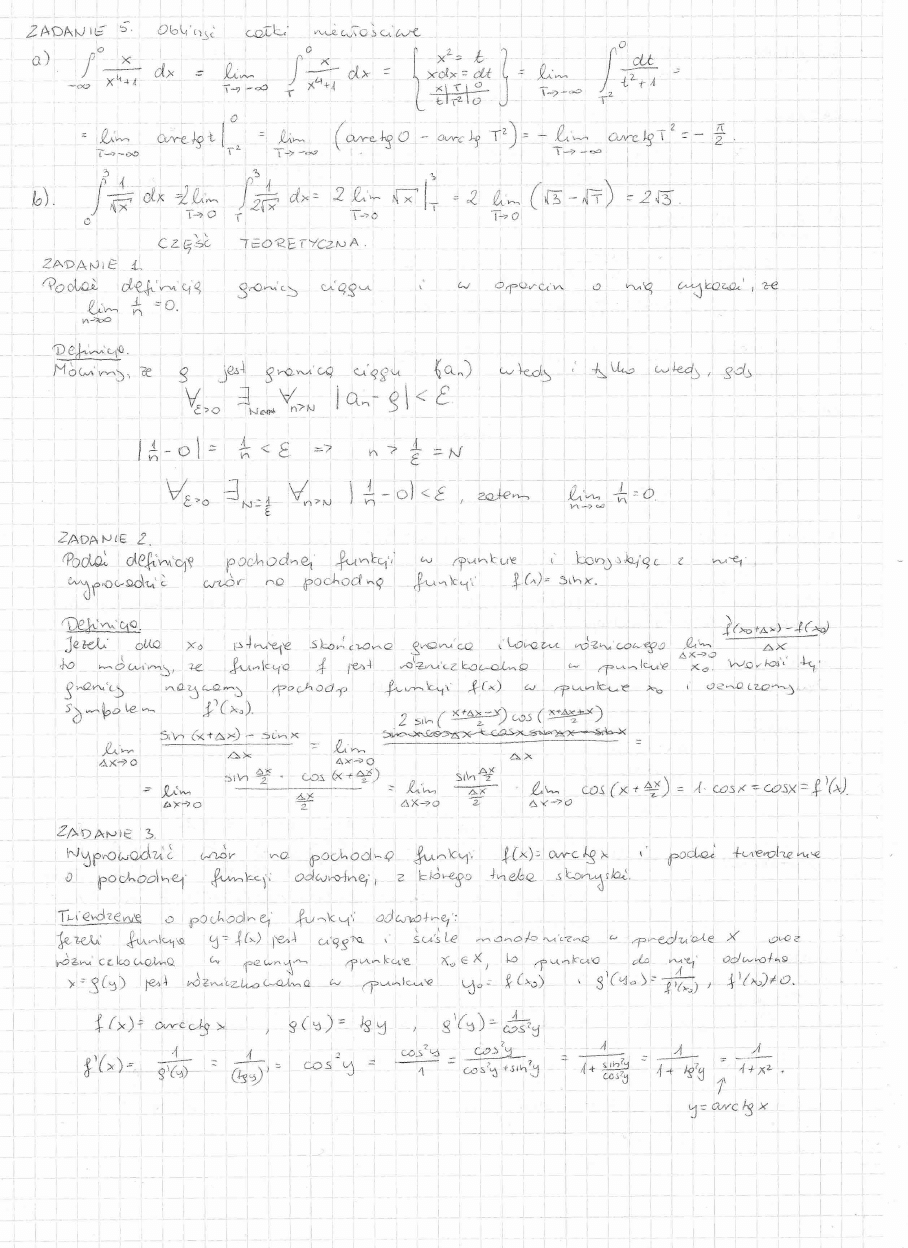 ZADANIE 5. Obliczyć całki niewłaściwe
a) ∫_{-∞}^{0} x/(x⁴+1) dx = lim_{T→-∞} ∫_{T}^{0} x/(x⁴+1) dx = { x² = t; xdx = dt; x|T|0; t|T²|0 } = lim_{T→-∞} ∫_{T²}^{0} dt/(t²+1) =
= lim_{T→-∞} arctg t |_{T²}^{0} = lim_{T→-∞} (arctg 0 - arctg T²) = - lim_{T→-∞} arctg T² = - π/2.
b). ∫_{0}^{3} 1/√x dx = 2 lim_{T→0} ∫_{T}^{3} 1/(2√x) dx = 2 lim_{T→0} √x |_{T}^{3} = 2 lim_{T→0} (√3 - √T) = 2√3.
CZĘŚĆ TEORETYCZNA.
ZADANIE 1.
Podać definicję granicy ciągu i w oparciu o nią wykazać, że
lim_{n→∞} 1/n = 0.
Definicja.
Mówimy, że g jest granicą ciągu (an) wtedy i tylko wtedy, gdy
∀_{ε>0} ∃_{N} ∀_{n>N} |an - g| < ε
|1/n - 0| = 1/n < ε => n > 1/ε = N
∀_{ε>0} ∃_{N=1/ε} ∀_{n>N} |1/n - 0| < ε, zatem lim_{n→∞} 1/n = 0.
ZADANIE 2.
Podać definicję pochodnej funkcji w punkcie i korzystając z niej
wyprowadzić wzór na pochodną funkcji f(x) = sinx.
Definicja.
Jeżeli dla x₀ istnieje skończona granica ilorazu różnicowego lim_{Δx→0} (f(x₀+Δx) - f(x₀))/Δx
to mówimy, że funkcja f jest różniczkowalna w punkcie x₀. Wartość tej
granicy nazywamy pochodną funkcji f(x) w punkcie x₀ i oznaczamy
symbolem f'(x₀).
lim_{Δx→0} (sin(x+Δx) - sinx)/Δx = lim_{Δx→0} (2 sin((x+Δx-x)/2) cos((x+Δx+x)/2))/Δx =
= lim_{Δx→0} (sin Δx/2 · cos(x+Δx/2))/(Δx/2) = lim_{Δx→0} (sin Δx/2)/(Δx/2) · lim_{Δx→0} cos(x+Δx/2) = 1·cosx = cosx = f'(x).
ZADANIE 3.
Wyprowadzić wzór na pochodną funkcji f(x) = arctgx i podać twierdzenie
o pochodnej funkcji odwrotnej, z którego trzeba skorzystać.
Twierdzenie o pochodnej funkcji odwrotnej:
Jeżeli funkcja y=f(x) jest ciągła i ściśle monotoniczna w przedziale X oraz
różniczkowalna w pewnym punkcie x₀∈X, to punkcja do niej odwrotna
x=g(y) jest różniczkowalna w punkcie y₀ = f(x₀) i g'(y₀) = 1/f'(x₀), f'(x₀)≠0.
f(x) = arcctgx, g(y) = tgy, g'(y) = 1/cos²y
f'(x) = 1/g'(y) = 1/(tgy)' = cos²y = cos²y/1 = cos²y/(cos²y+sin²y) = 1/(1+sin²y/cos²y) = 1/(1+tg²y) = 1/(1+x²).
↑
y = arctgx